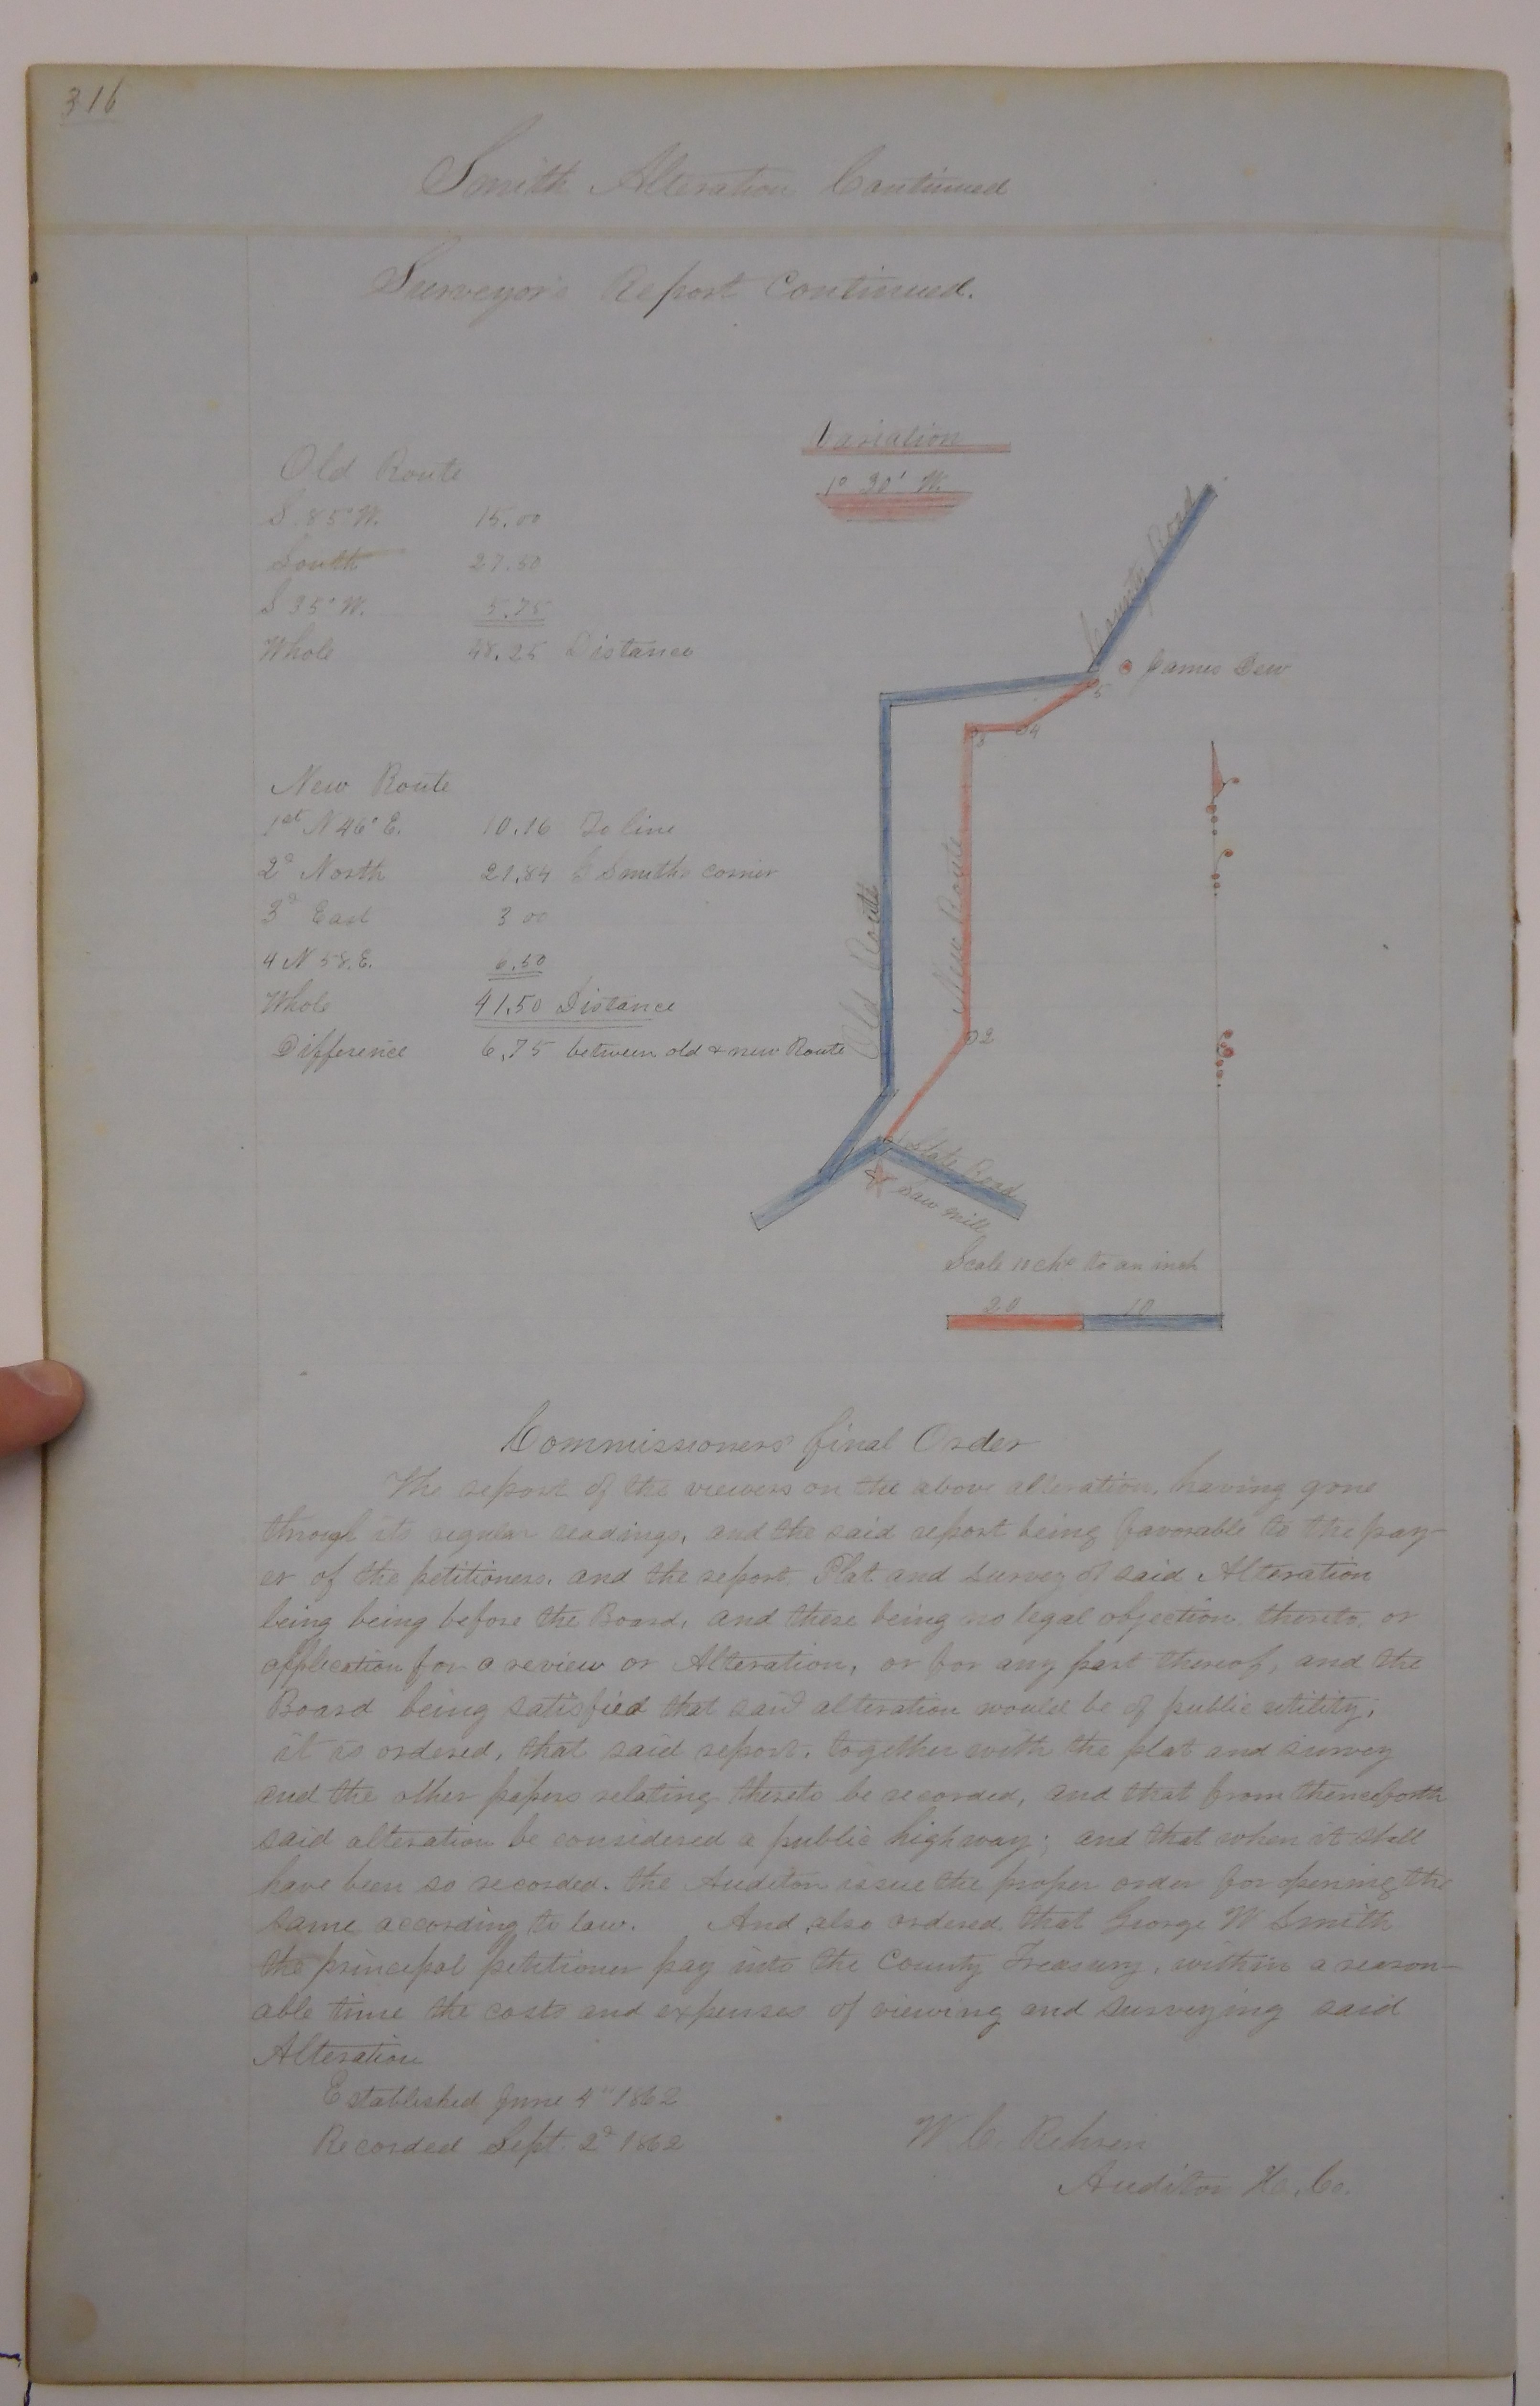 316
Smith Alteration Continued
Surveyor's Report Continued.
Variation
1° 30' W.
Old Route
S. 85° W. 15.00
South 27.50
S 35° W. 5.75
Whole 48.25 Distance
County Road
James Dew
5
3 4
New Route
1st N 46° E. 10.16 To line
2d North 21.84 G Smiths corner
3d East 3 00
4 N 58. E. 6.50
Whole 41.50 Distance
Difference 6.75 between old & new Route
Old Route
New Route
2
1
State Road
Saw mill
Scale 10 chs to an inch
20 10
Commissioners final Order
The report of the viewers on the above alteration, having gone
through its regular readings, and the said report being favorable to the pray-
er of the petitioners, and the report, Plat and survey of said Alteration
being being before the Board, and there being no legal objection thereto, or
application for a review or Alteration, or for any part thereof, and the
Board being satisfied that said alteration would be of public utility;
it is ordered, that said report, together with the plat and survey
and the other papers relating thereto be recorded, and that from thenceforth
said alteration be considered a public highway; and that when it shall
have been so recorded, the Auditor issue the proper order for opening the
same according to law. And also ordered that George W Smith
the principal petitioner pay into the County Treasury, within a reason-
able time the costs and expenses of viewing and surveying said
Alteration
Established June 4" 1862
Recorded Sept. 2d 1862
W. C.
Auditor H. Co.